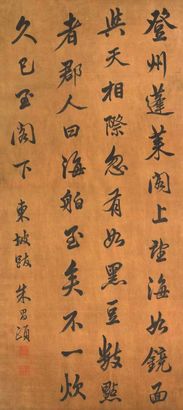 登州蓬萊閣上望海如鏡面
與天相際忽有如黑豆數點
者郡人曰海舶至矣不一炊
久已至閣下
東坡跋 朱昌頤